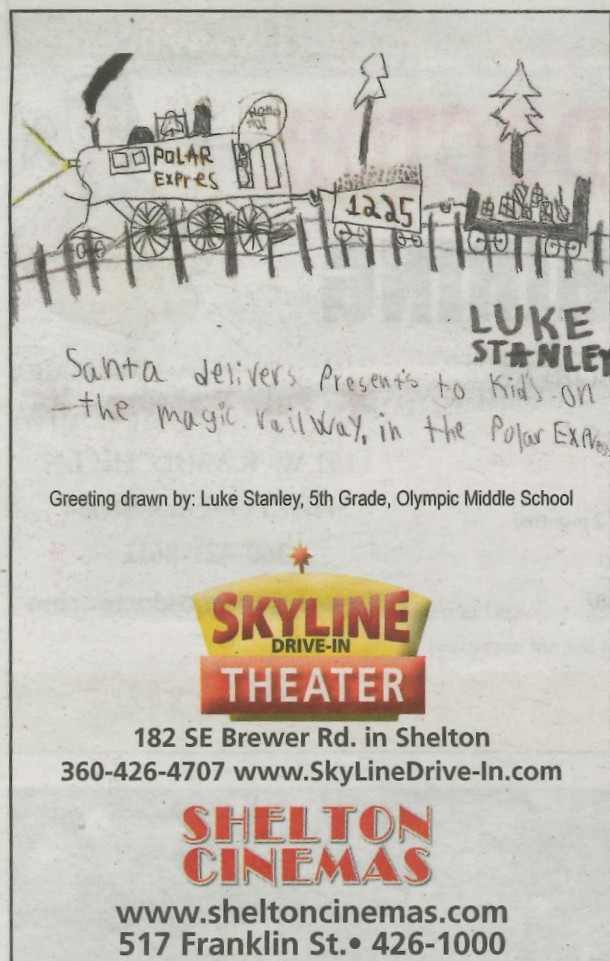 HoHo
Ho!
POLAR
Expres
1225
LUKE
STANLEY
Santa delivers Presents to Kids on
the magic railway, in the Polar Express
Greeting drawn by: Luke Stanley, 5th Grade, Olympic Middle School
SKYLINE
DRIVE-IN
THEATER
182 SE Brewer Rd. in Shelton
360-426-4707 www.SkyLineDrive-In.com
SHELTON
CINEMAS
www.sheltoncinemas.com
517 Franklin St.• 426-1000